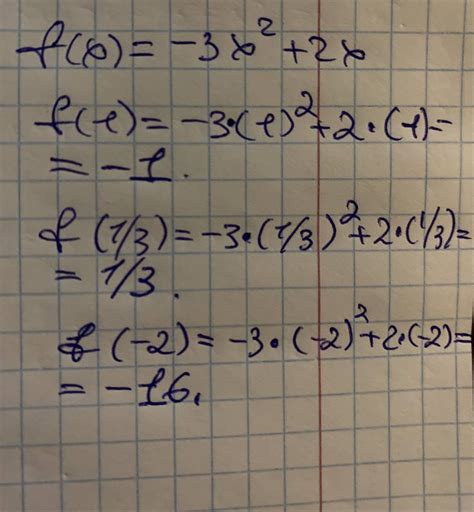 f(x) = -3x² + 2x
f(-1) = -3·(-1)² + 2·(-1) =
= -1.
f(1/3) = -3·(1/3)² + 2·(1/3) =
= 1/3.
f(-2) = -3·(-2)² + 2·(-2) =
= -16.